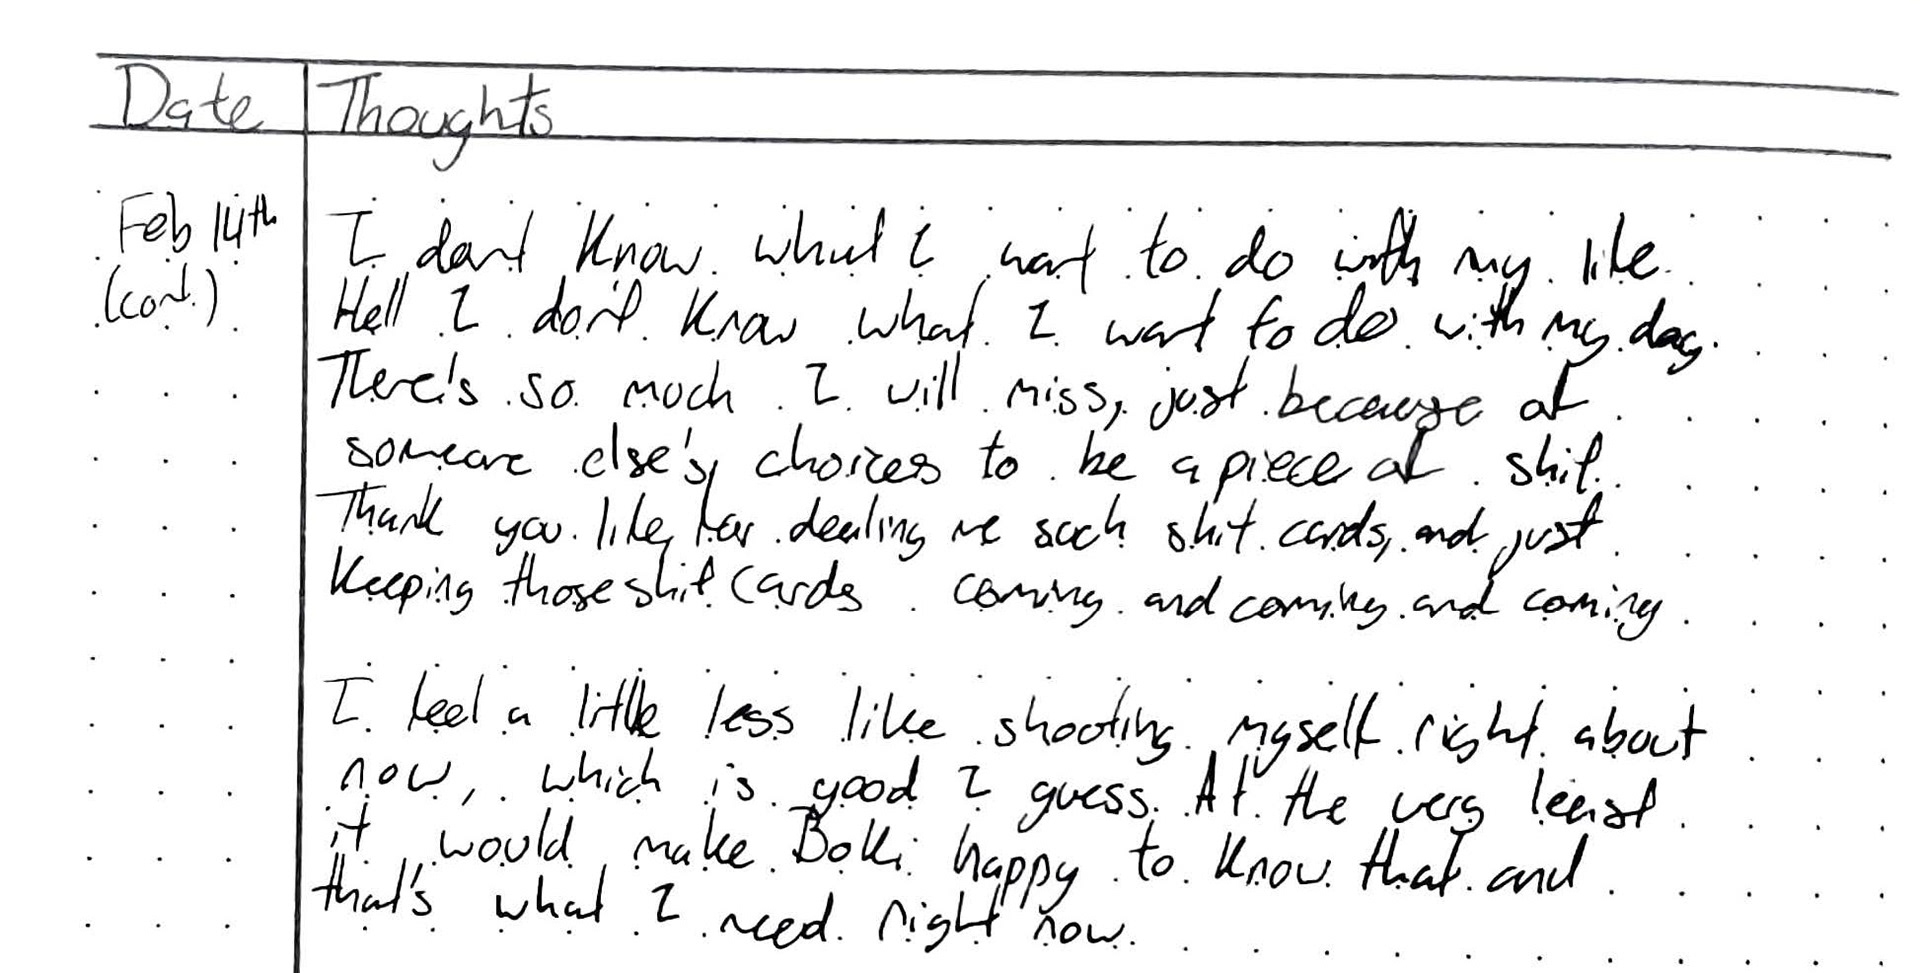 Date Thoughts
Feb 14th I don't know what I want to do with my life.
(cont.) Hell I don't know what I want to do with my day.
There's so much I will miss, just because of
someone else's, choices to be a piece of shit.
Thank you life, for dealing me such shit cards, and just
keeping those shit cards coming and coming and coming
I feel a little less like shooting myself right about
now, which is good I guess. At the very least
it would make Bolki happy to know that and
that's what I need right now.